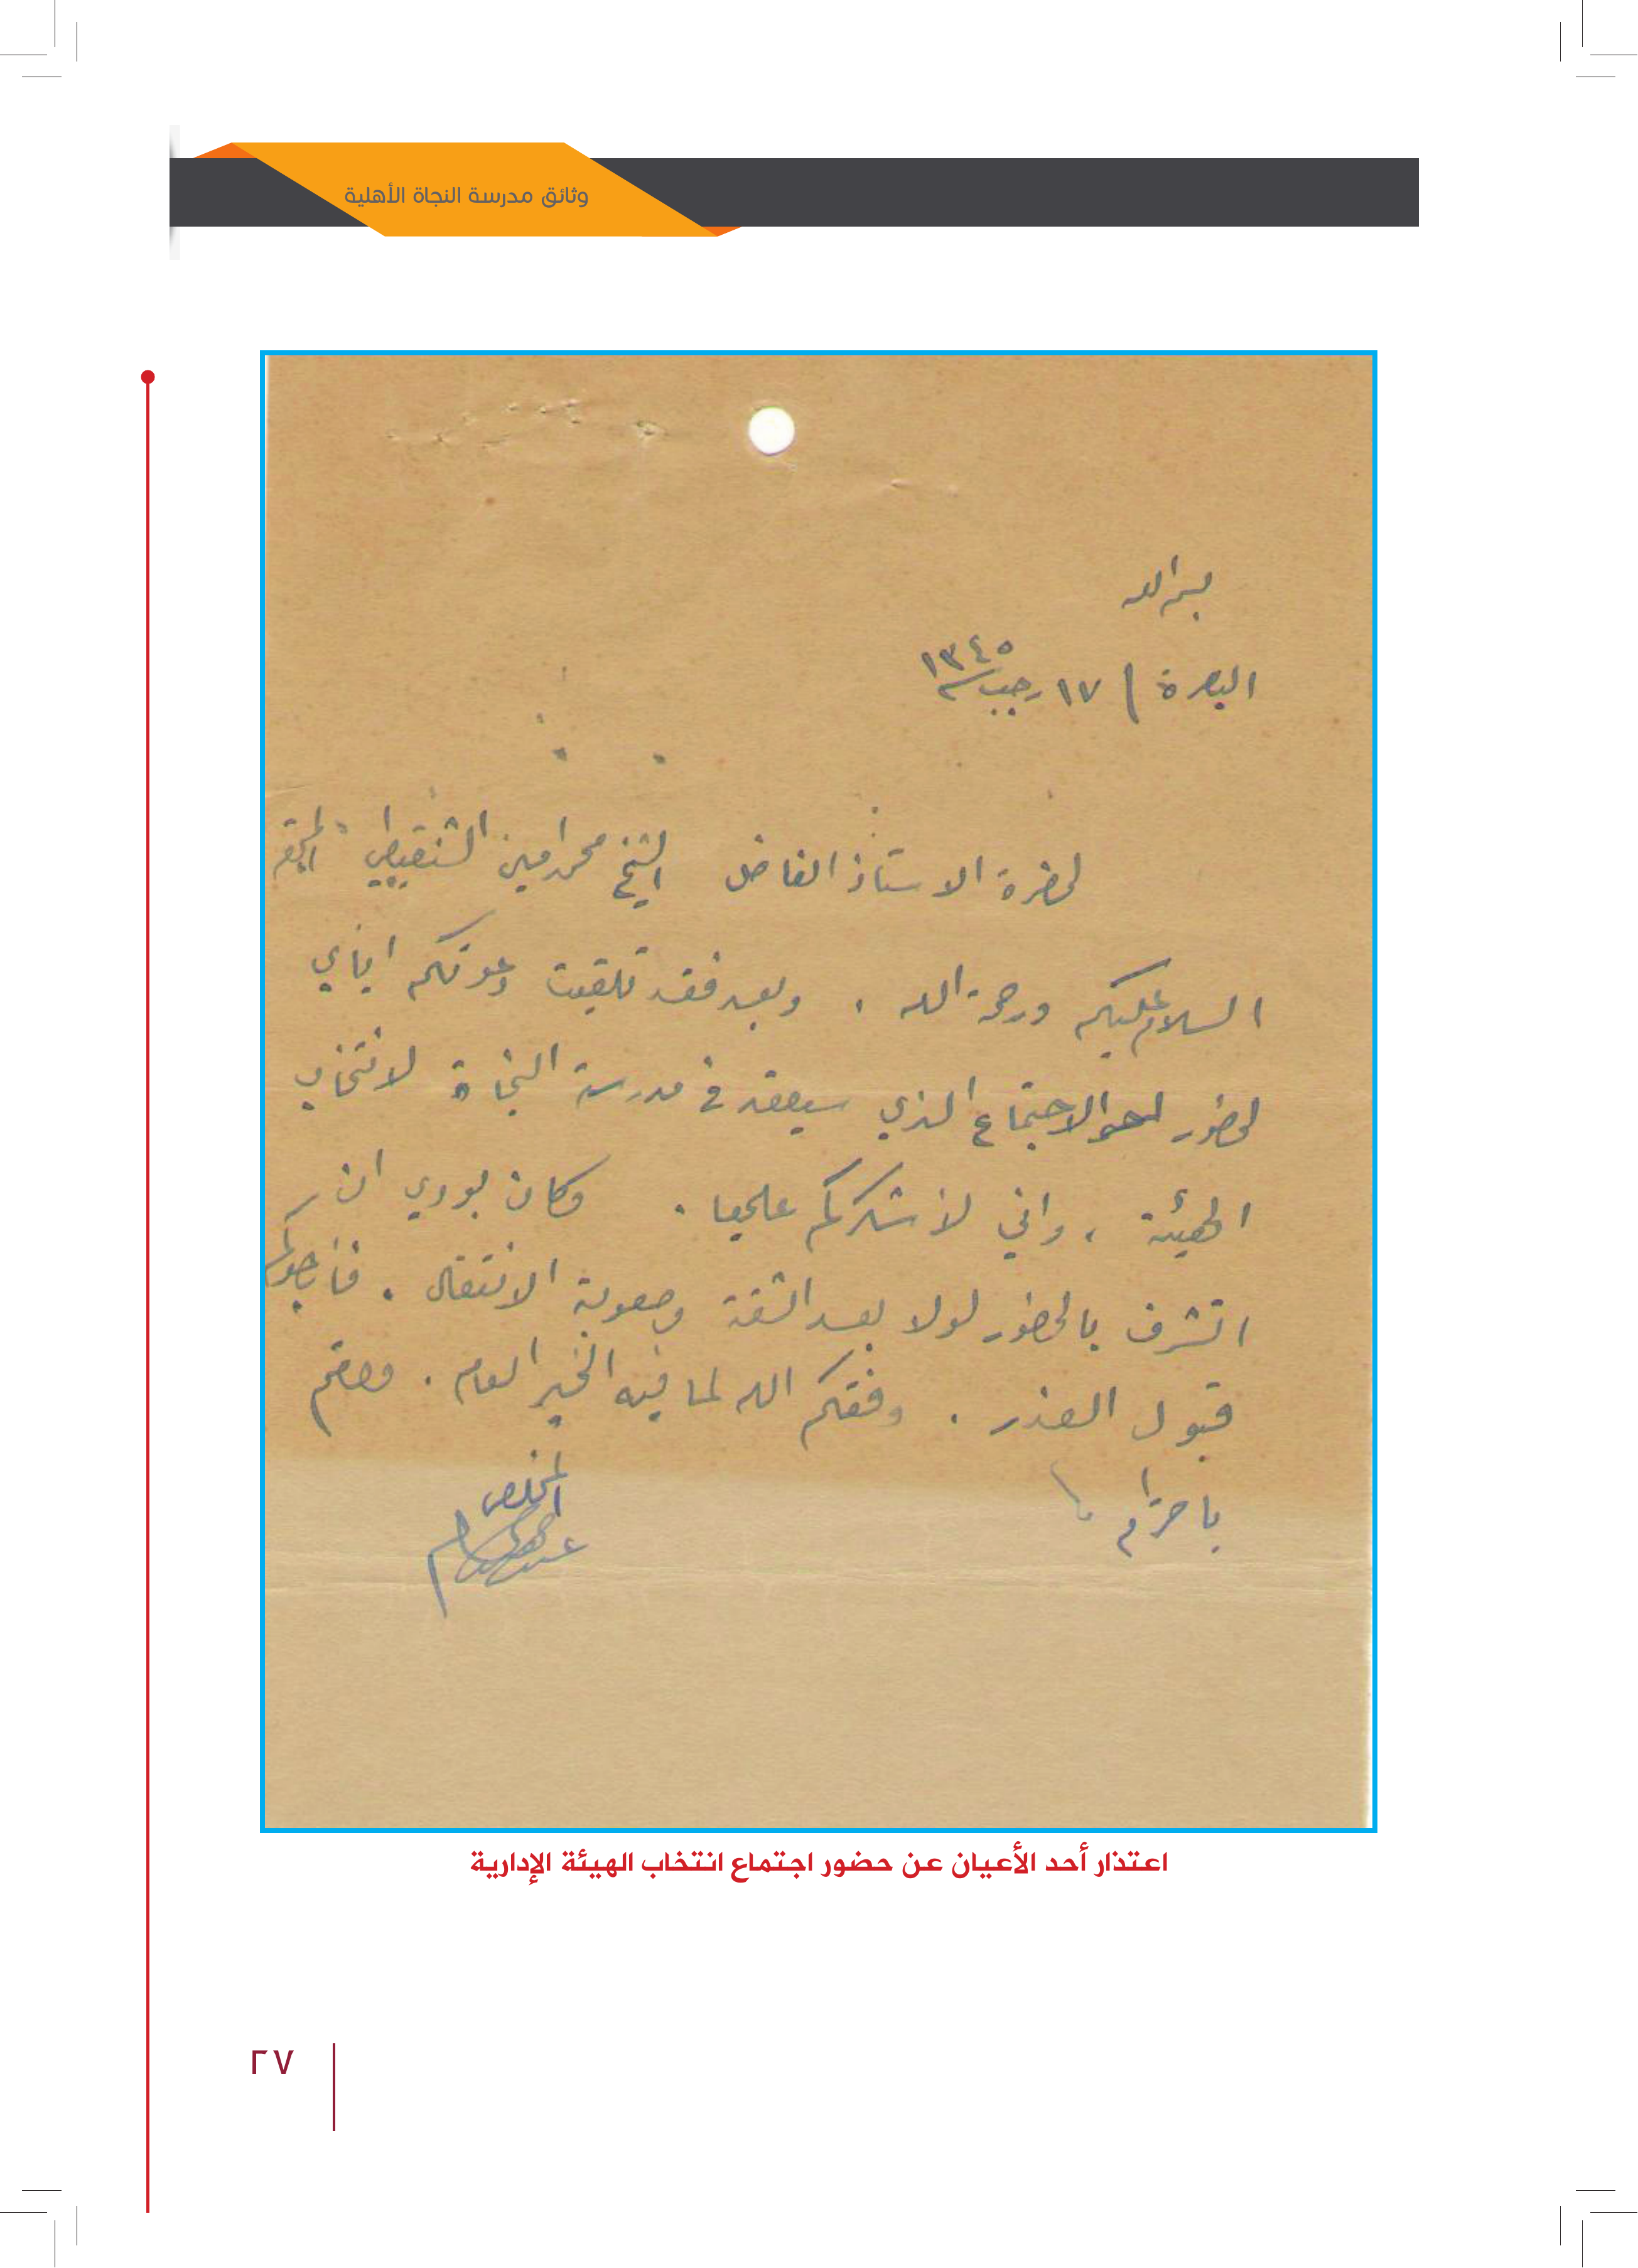 وثائق مدرسة النجاة الأهلية
بسم الله
البصرة / ١٧ رجب ١٣٤٥
لحضرة الاستاذ الفاضل الشيخ محمد امين الشنقيطي المحترم
السلام عليكم ورحمة الله . وبعد فقد تلقيت دعوتكم اياي
لحضور الاجتماع الذي سيعقد في مدرسة النجاة لانتخاب
الهيئة ، واني لأشكركم عليها . وكان بودي ان
اتشرف بالحضور لولا بعد الشقة وصعوبة الانتقال . فأرجوكم
قبول العذر . وفقكم الله لما فيه الخير العام . ودمتم
باحترام
المخلص
اعتذار أحد الأعيان عن حضور اجتماع انتخاب الهيئة الإدارية
٢٧